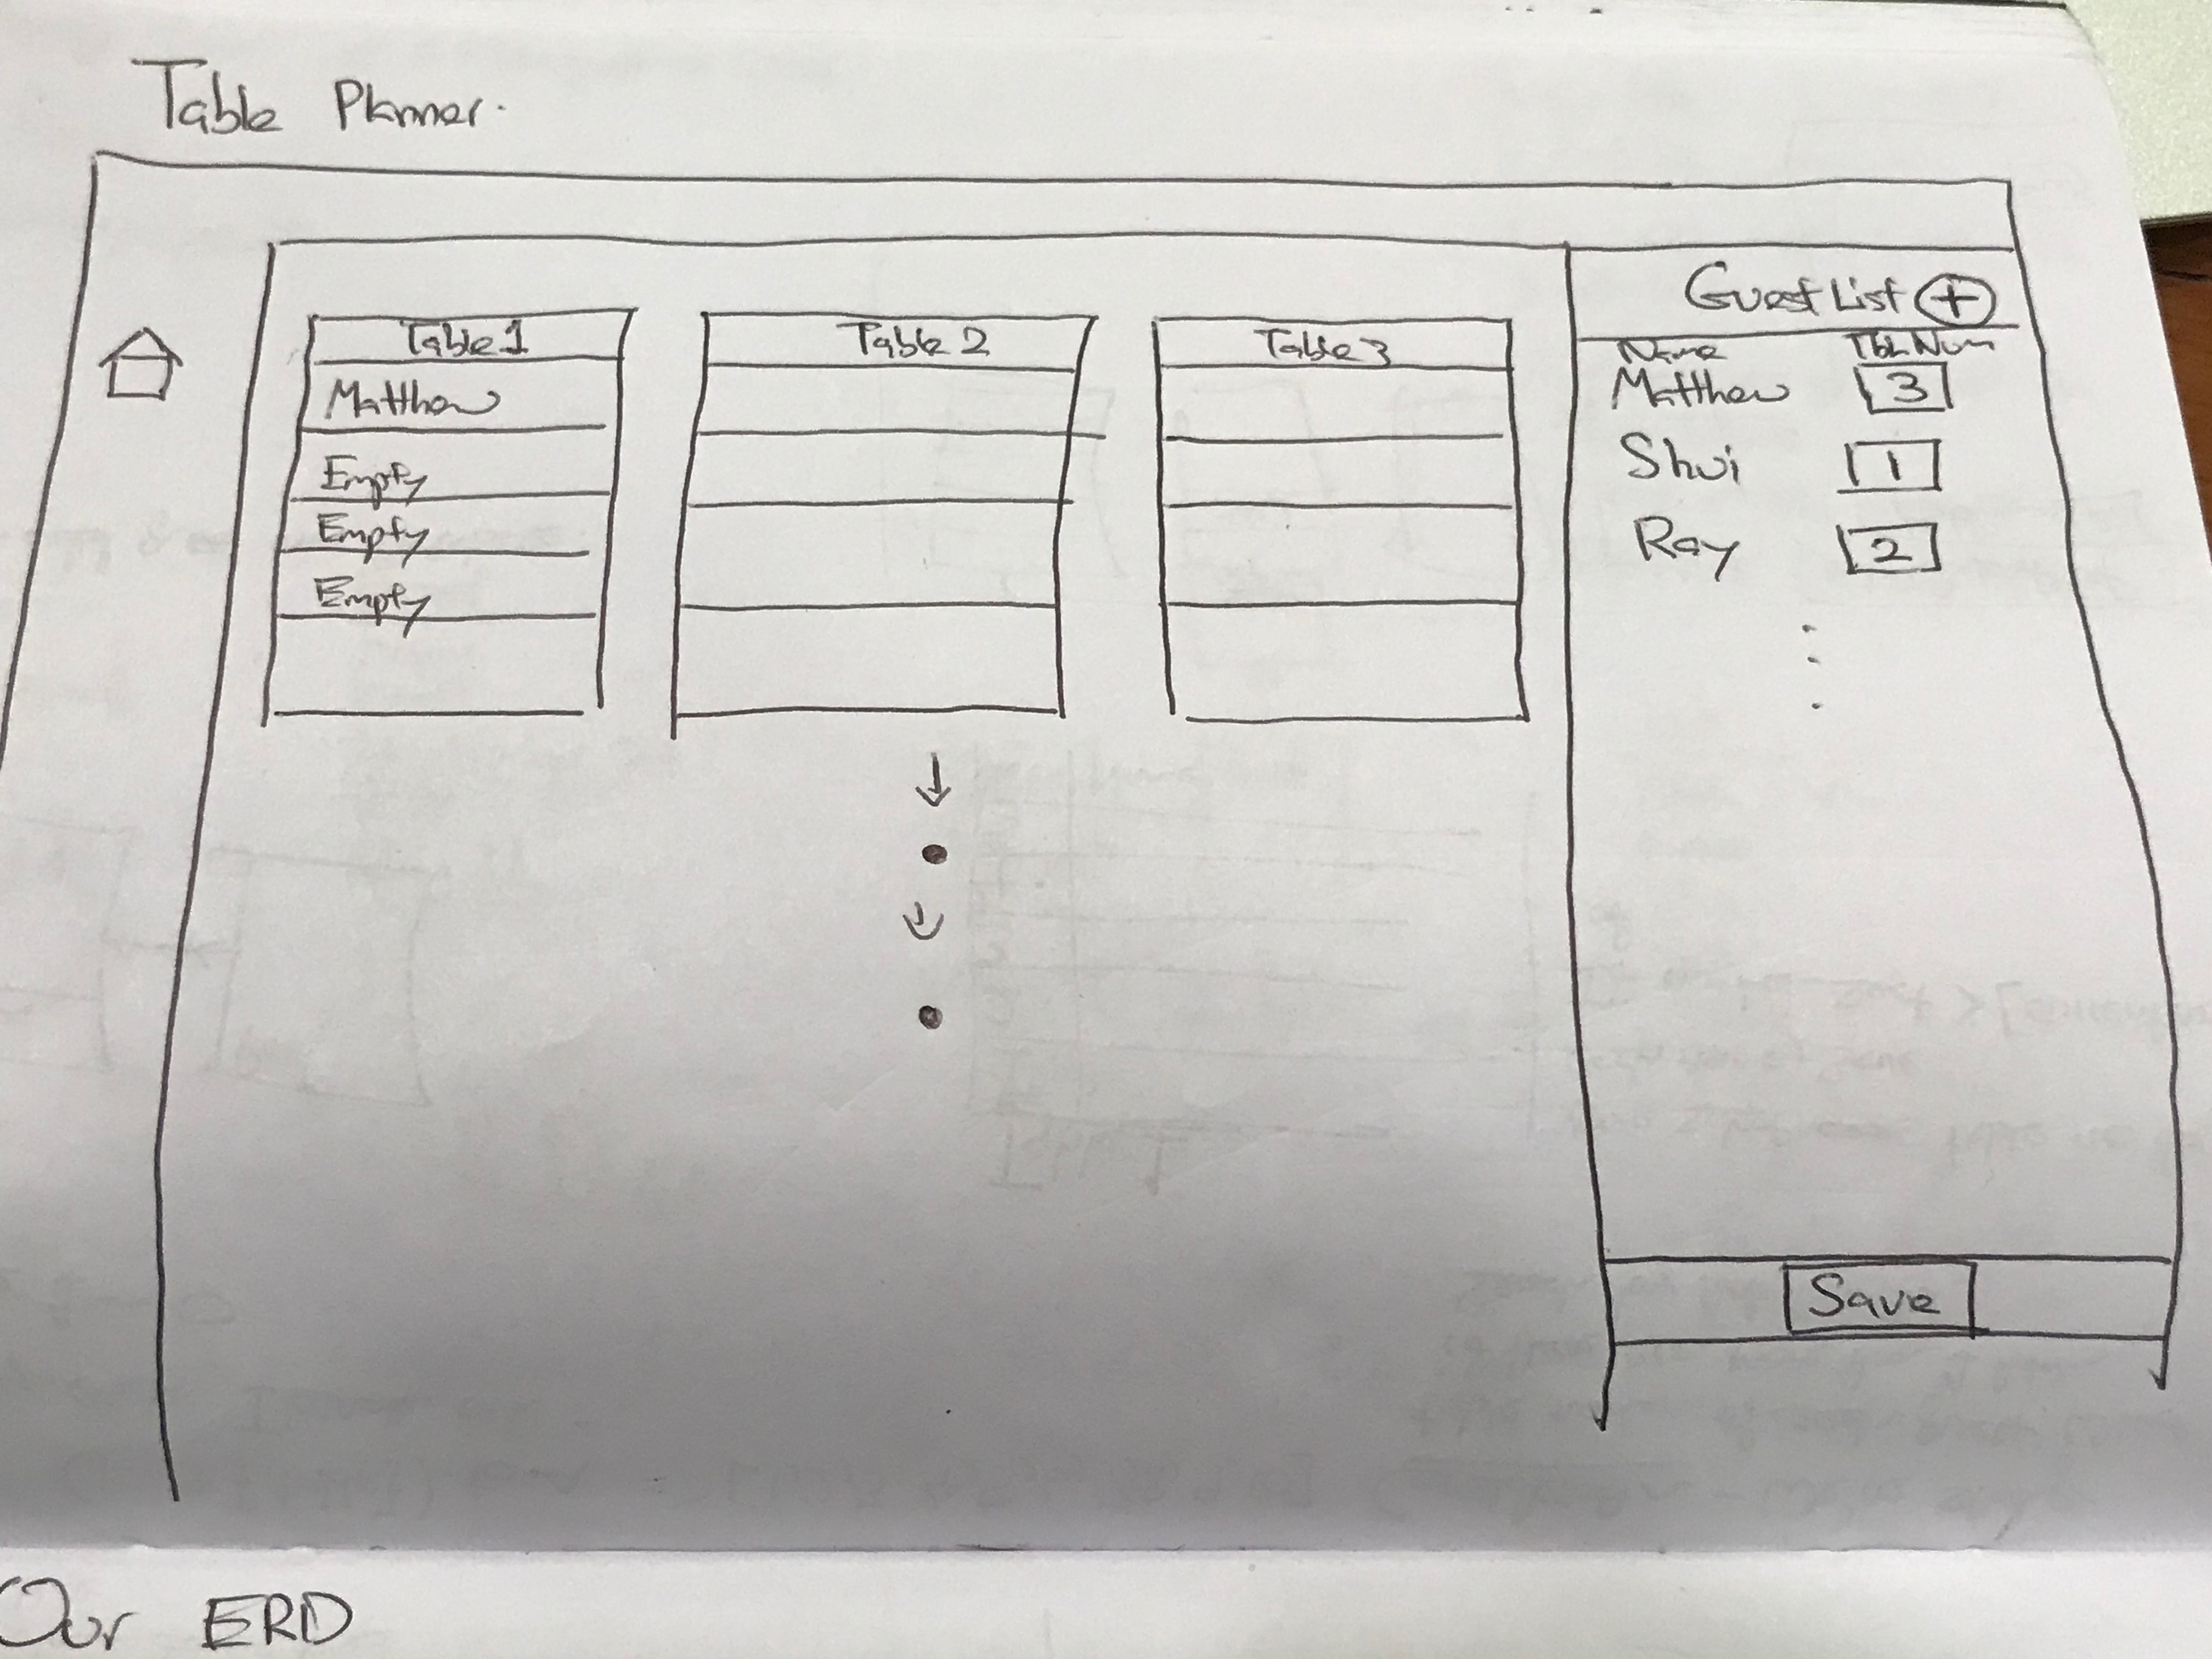 Table Planner.
Table 1
Matthew
Empty
Empty
Empty
Table 2
Table 3
Guest List +
Name Tbl Num
Matthew 3
Shui 1
Ray 2
Save
Our ERD